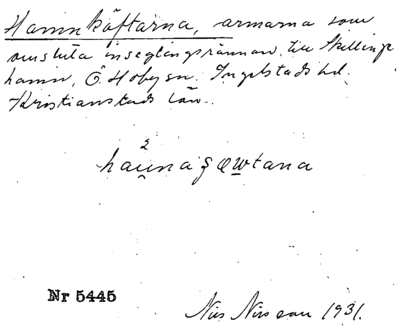 Hamnkäftarna, armarna som
omsluta inseglingsrännan till Skillinge
hamn, Ö. Hoby sn. Ingelstads hd.
Kristianstads län.
2
Nr 5445
Nils Nilsson 1931.